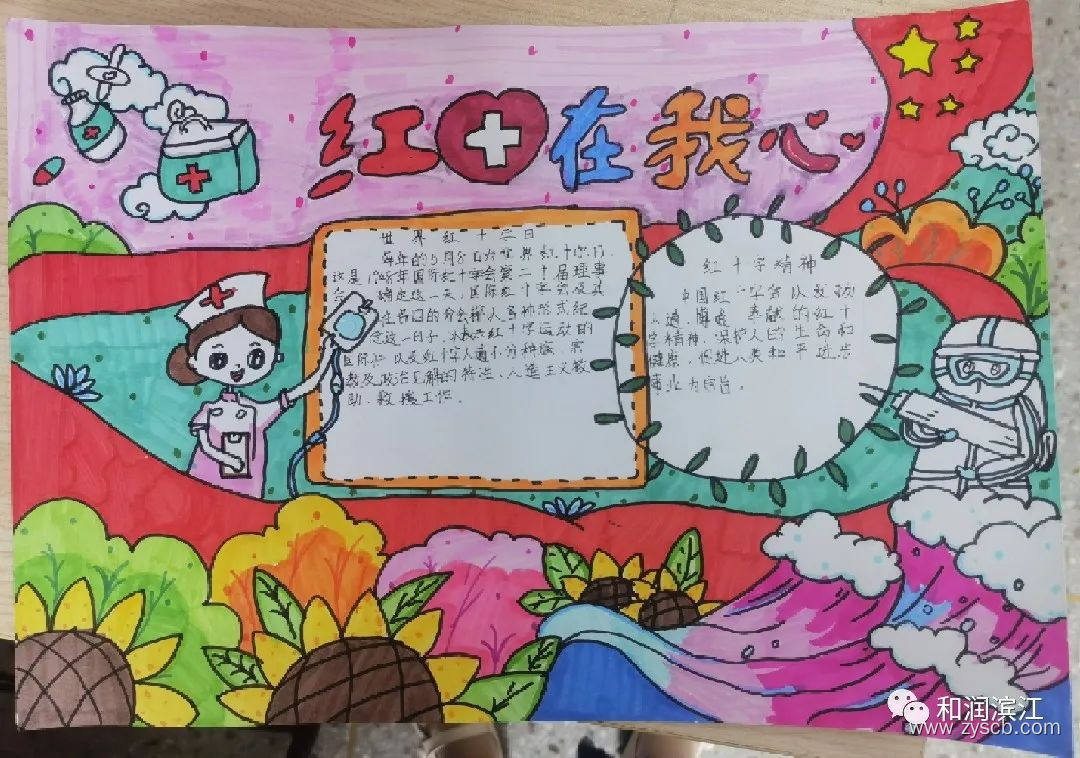 红十在我心
世界红十字日
每年的5月8日为世界红十字日,
这是1948年国际红十字会第二十届理事
确定这一天,国际红十字会及其
在各国的分会都以各种形式纪
念这一日子,以表示红十字运动的
国际性以及红十字人道不分种族、宗
教及政治见解的特性,人道主义救
助、救援工作.
红十字精神
中国红十字会以发扬
人道、博爱、奉献的红十
字精神,保护人的生命和
健康,促进人类和平进步
事业为宗旨。
和润滨江
www.zyscb.com